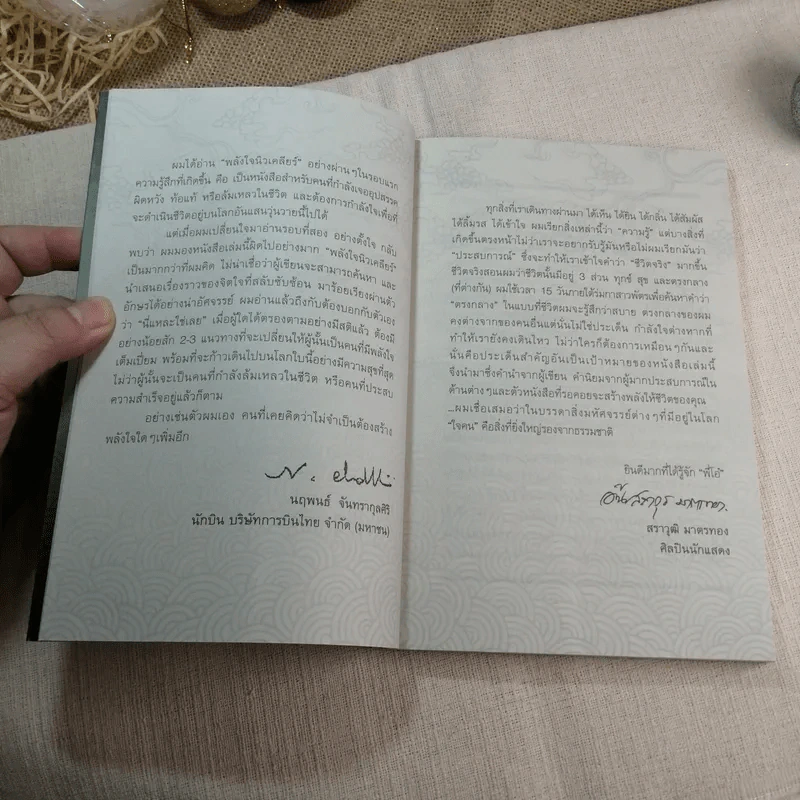 ผมได้อ่าน "พลังใจนิวเคลียร์" อย่างผ่านๆในรอบแรก
ความรู้สึกที่เกิดขึ้น คือ เป็นหนังสือสำหรับคนที่กำลังเจออุปสรรค
ผิดหวัง ท้อแท้ หรือล้มเหลวในชีวิต และต้องการกำลังใจเพื่อที่
จะดำเนินชีวิตอยู่บนโลกอันแสนวุ่นวายนี้ไปได้
แต่เมื่อผมเปลี่ยนใจมาอ่านรอบที่สอง อย่างตั้งใจ กลับ
พบว่า ผมมองหนังสือเล่มนี้ผิดไปอย่างมาก "พลังใจนิวเคลียร์"
เป็นมากกว่าที่ผมคิด ไม่น่าเชื่อว่าผู้เขียนจะสามารถค้นหา และ
นำเสนอเรื่องราวของจิตใจที่สลับซับซ้อน มาร้อยเรียงผ่านตัว
อักษรได้อย่างน่าอัศจรรย์ ผมอ่านแล้วถึงกับต้องบอกกับตัวเอง
ว่า "นี่แหละใช่เลย" เมื่อผู้ใดได้ตรองตามอย่างมีสติแล้ว ต้องมี
อย่างน้อยสัก 2-3 แนวทางที่จะเปลี่ยนให้ผู้นั้นเป็นคนที่มีพลังใจ
เต็มเปี่ยม พร้อมที่จะก้าวเดินไปบนโลกใบนี้อย่างมีความสุขที่สุด
ไม่ว่าผู้นั้นจะเป็นคนที่กำลังล้มเหลวในชีวิต หรือคนที่ประสบ
ความสำเร็จอยู่แล้วก็ตาม
อย่างเช่นตัวผมเอง คนที่เคยคิดว่าไม่จำเป็นต้องสร้าง
พลังใจใดๆเพิ่มอีก
นฤพนธ์ จันทรากุลศิริ
นักบิน บริษัทการบินไทย จำกัด (มหาชน)
ทุกสิ่งที่เราเดินทางผ่านมา ได้เห็น ได้ยิน ได้กลิ่น ได้สัมผัส
ได้ลิ้มรส ได้เข้าใจ ผมเรียกสิ่งเหล่านี้ว่า "ความรู้" แต่บางสิ่งที่
เกิดขึ้นตรงหน้าไม่ว่าเราจะอยากรับรู้มันหรือไม่ผมเรียกมันว่า
"ประสบการณ์" ซึ่งจะทำให้เราเข้าใจคำว่า "ชีวิตจริง" มากขึ้น
ชีวิตจริงสอนผมว่าชีวิตนั้นมีอยู่ 3 ส่วน ทุกข์ สุข และตรงกลาง
(ที่ต่างกัน) ผมใช้เวลา 15 วันภายใต้ร่มกาสาวพัตรเพื่อค้นหาคำว่า
"ตรงกลาง" ในแบบที่ชีวิตผมจะรู้สึกว่าสบาย ตรงกลางของผม
คงต่างจากของคนอื่นแต่นั่นไม่ใช่ประเด็น กำลังใจต่างหากที่
ทำให้เรายังคงเดินไหว ไม่ว่าใครก็ต้องการเหมือนๆกันและ
นั่นคือประเด็นสำคัญอันเป็นเป้าหมายของหนังสือเล่มนี้
จึงนำมาซึ่งคำนำจากผู้เขียน คำนิยมจากผู้มากประสบการณ์ใน
ด้านต่างๆและตัวหนังสือที่รอคอยจะสร้างพลังให้ชีวิตของคุณ
...ผมเชื่อเสมอว่าในบรรดาสิ่งมหัศจรรย์ต่างๆที่มีอยู่ในโลก
"ใจคน" คือสิ่งที่ยิ่งใหญ่รองจากธรรมชาติ
ยินดีมากที่ได้รู้จัก "พี่โอ๋"
สราวุฒิ มาตรทอง
ศิลปินนักแสดง